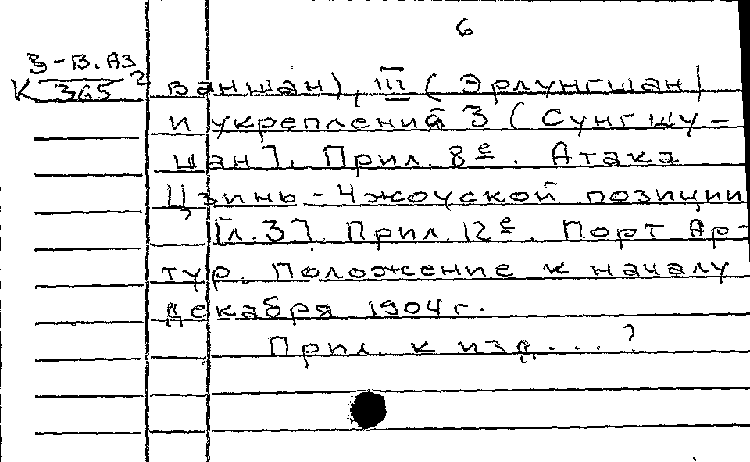 6
З-В.Аз
К 365 2
ваншан), III (Эрлунгшан)
и укреплений 3 (Сунгшу-
шан]. Прил. 8е. Атака
Цзинь-Чжоуской позиции
[л.3]. Прил. 12е. Порт Ар-
тур. Положение к началу
декабря 1904 г.
Прил. к изд... ?